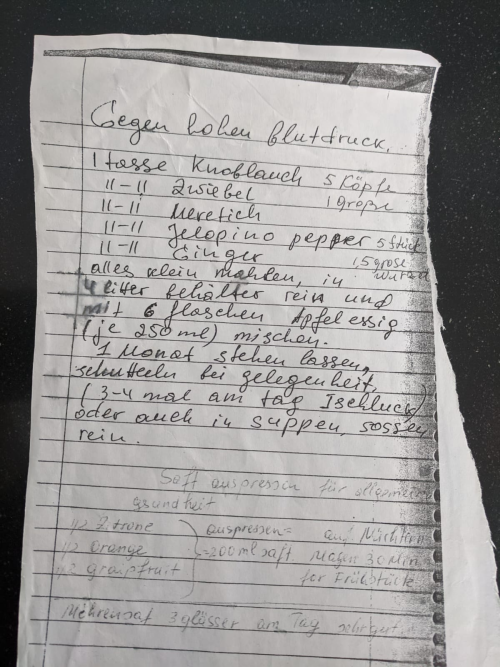 Gegen hohen Blutdruck.
1 tasse Knoblauch 5 Köpfe
11-11 Zwiebel 1 große
11-11 Meretich
11-11 Jelopino pepper 5 Stück
11-11 Ginger 1,5 grose
alles klein mahlen, in wurzel
4 litter behälter rein und
mit 6 flaschen Apfelessig
(je 250 ml) mischen.
1 Monat stehen lassen,
schutteln bei gelegenheit,
(3-4 mal am tag 1schluck)
oder auch in suppen, sossen
rein.
Saft auspressin für allgemein
gsundheit
1/2 Zitrone auspressen= auf Nüchtern
1/2 orange =200ml saft Magen 30 Min
1/2 graipfruit for Frühstück
Möhrensaf 3 glässer am Tag sehr gut.